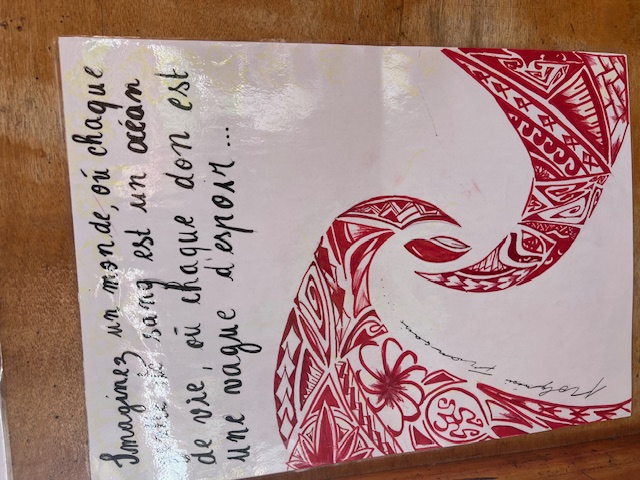 Imaginez un monde, où chaque
de sang est un océan
de vie, où chaque don est
une vague d'espoir...